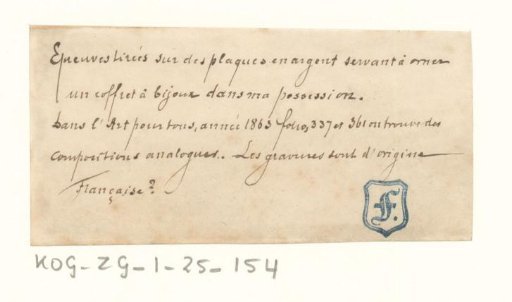 Epreuves tirées sur des plaques en argent servant à orner
un coffret à bijoux dans ma possession.
Dans l'Art pour tous, année 1863 folio, 337 et 361 on trouve des
compositions analogues. Les gravures sont d'origine
Française?
F.
KOG-ZG-1-25-154